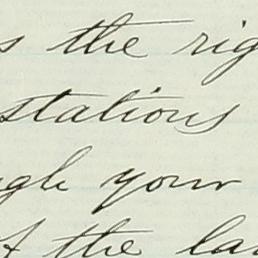 s the rig
stations
ugh your
of the la